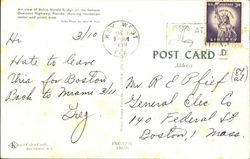 Air view of Bahia Honda Bridge on the famous
Overseas Highway, Florida, showing recreation
center and picnic area.
KEY WEST
POST CARD
Address
Hi 3/10
Hate to leave
this for Boston
Back to Miami 3/11
Greg
Mr. R E Phief
General Elec Co
140 Federal St
Boston, 1 Mass.